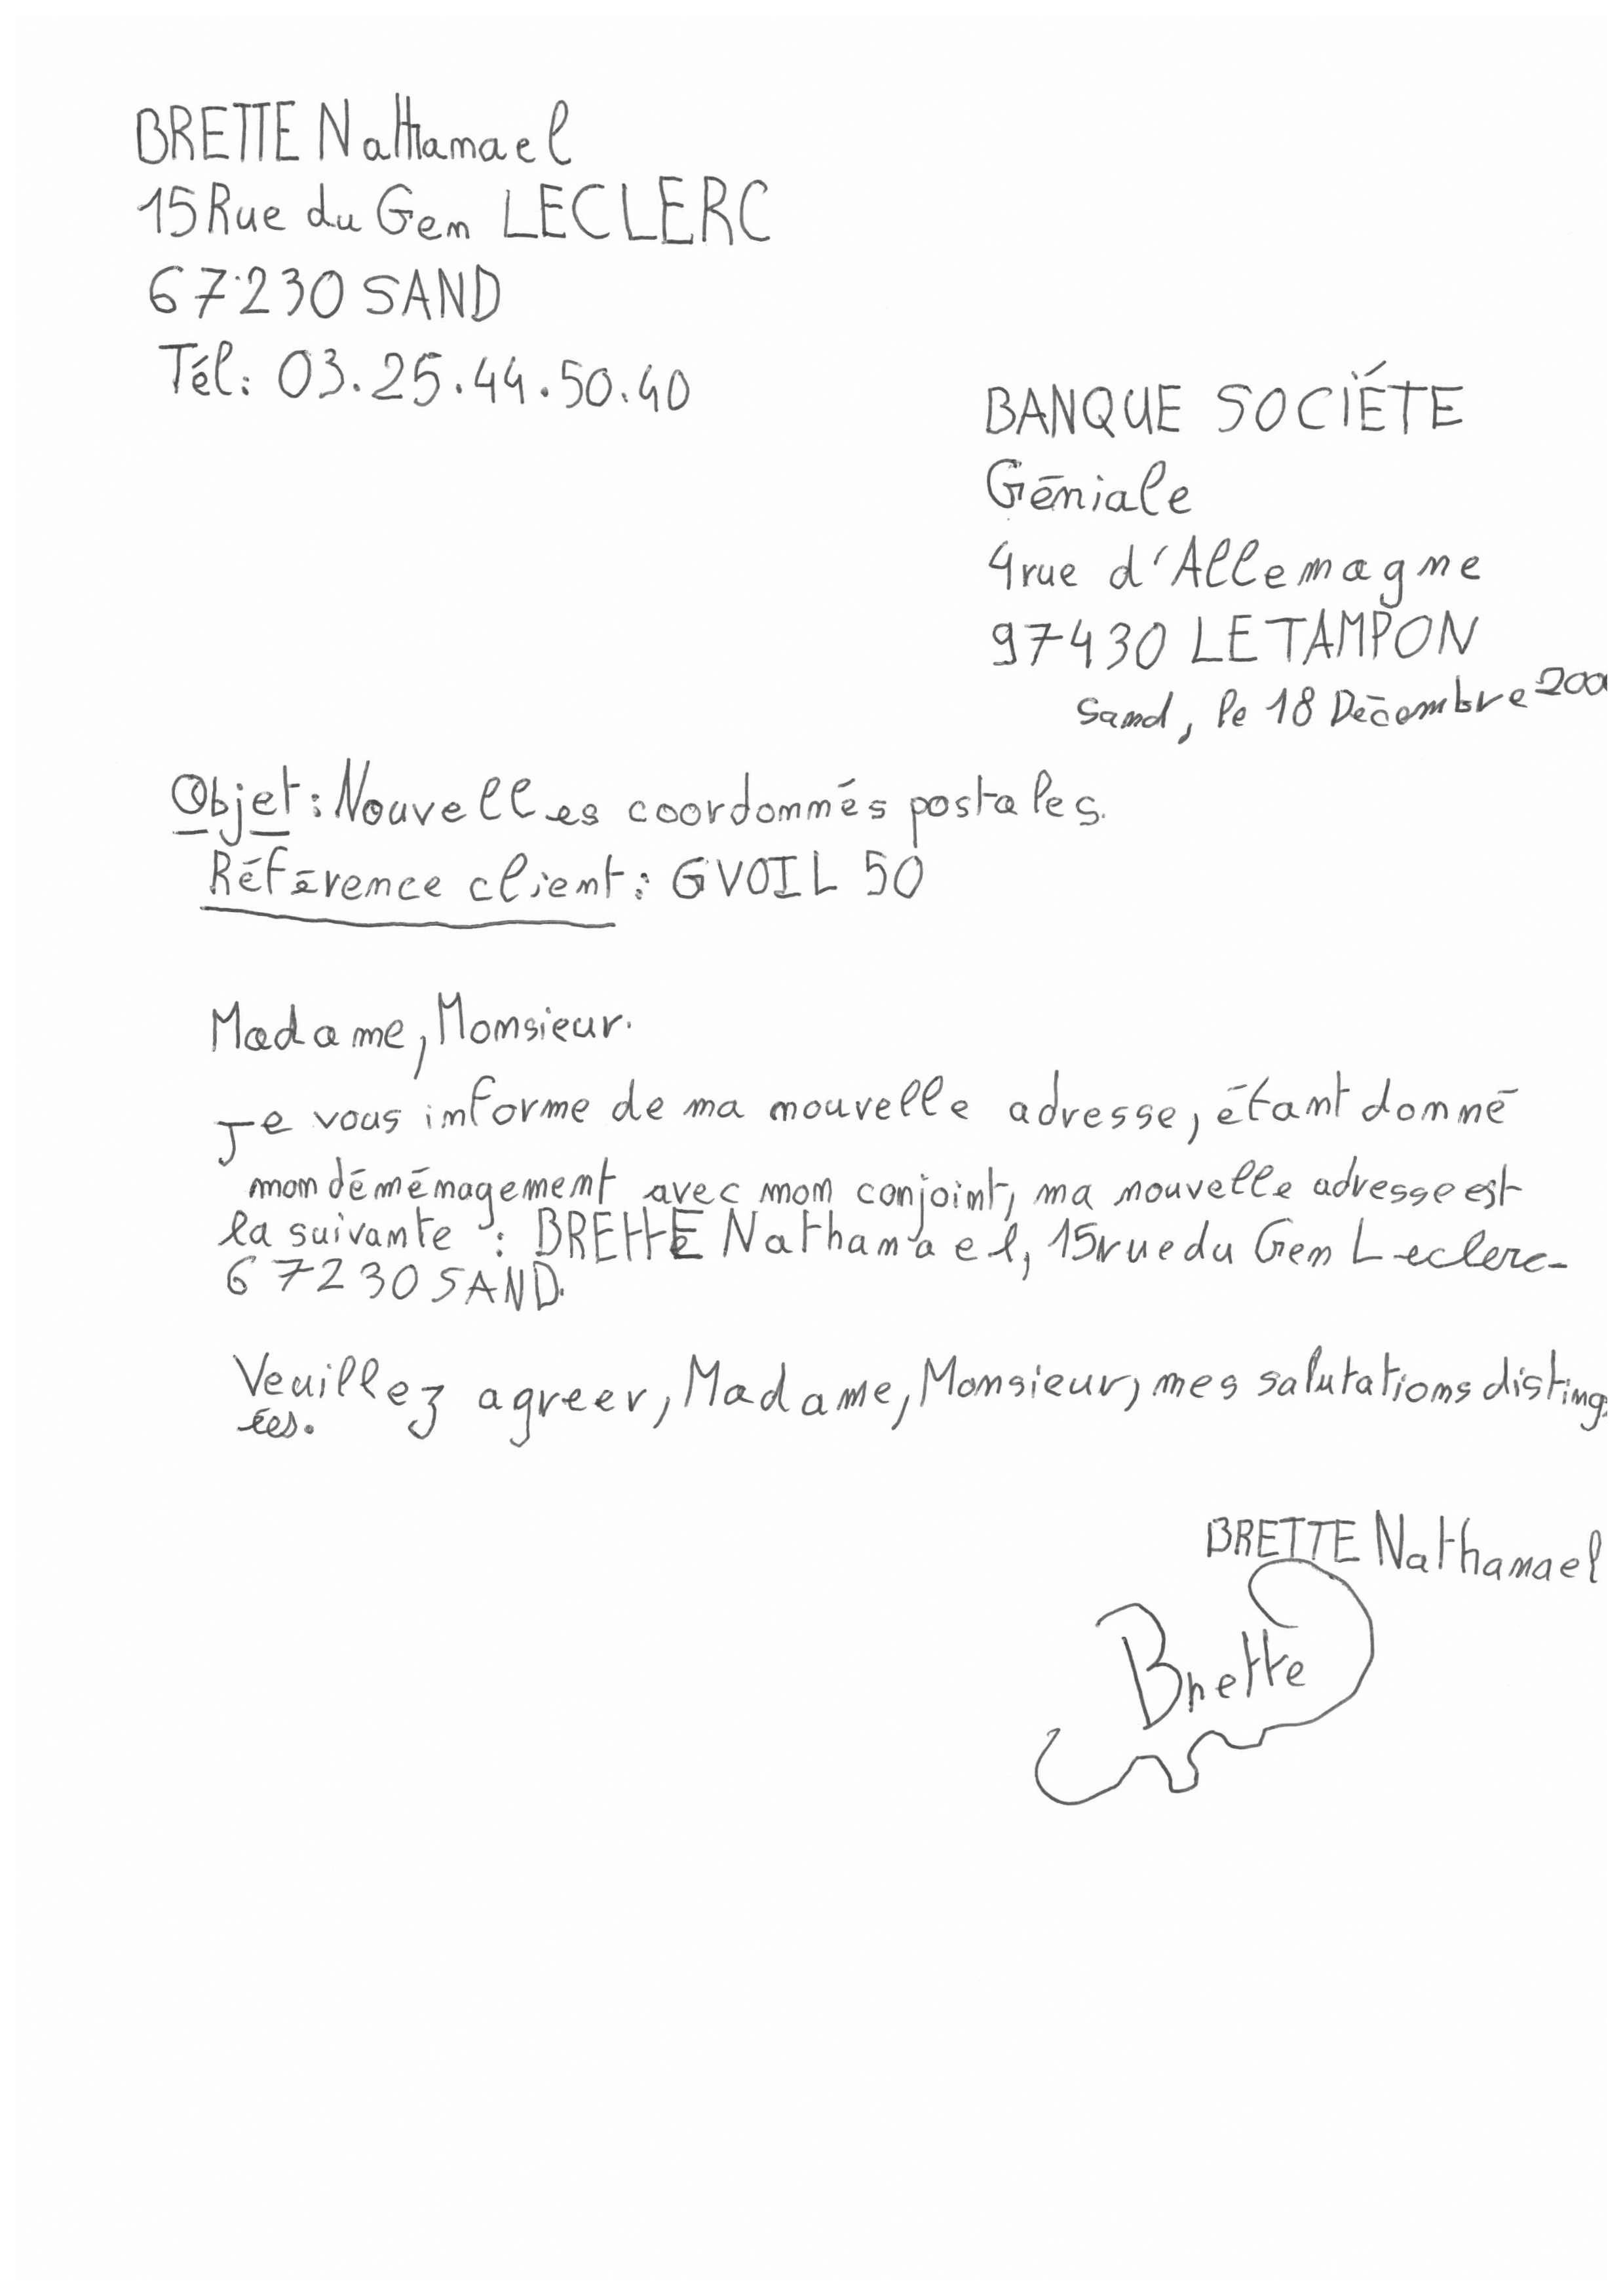 BRETTE Nathanael
15 Rue du Gen LECLERC
67230 SAND
Tél: 03.25.44.50.40
BANQUE SOCIÉTE
Géniale
4 rue d'Allemagne
97430 LE TAMPON
Sand, le 18 Décembre
Objet: Nouvelles coordonnés postales.
Référence client: GVOIL 50
Madame, Monsieur.
Je vous informe de ma nouvelle adresse, étant donné
mon déménagement avec mon conjoint, ma nouvelle adresse est
la suivante : BRETTE Nathanael, 15 rue du Gen Leclerc-
67230 SAND.
Veuillez agreer, Madame, Monsieur, mes salutations disting
ées.
BRETTE Nathanael
Brette